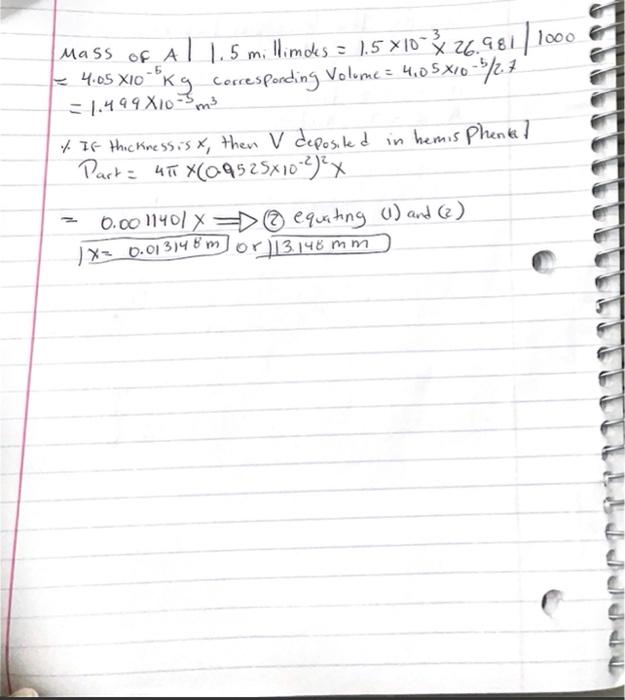 Mass of Al 1.5 millimoles = 1.5 X10⁻³ X 26.981 / 1000
= 4.05 X10⁻⁵ Kg corresponding Volume = 4.05 X10⁻⁵/2.7
= 1.499 X10⁻⁵ m³
If thickness is x, then V deposited in hemis Pherical
Part = 4π X(0.9525X10⁻²)² X
= 0.0011401 X ⟹ ② equating (1) and (2)
X= 0.013148 m or 13.148 mm